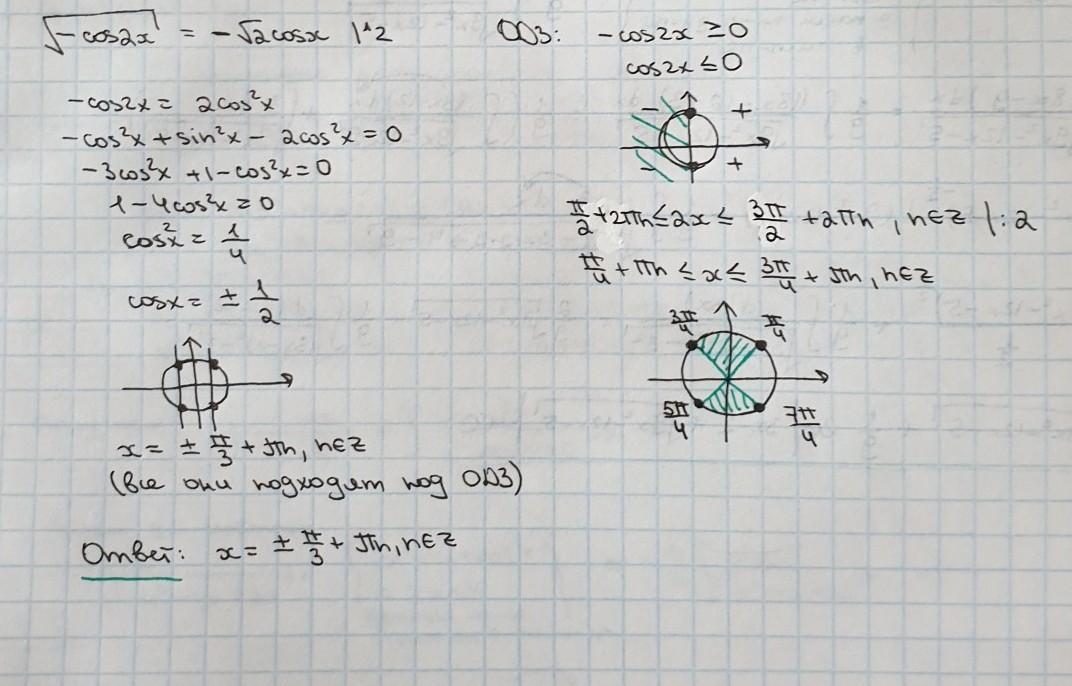 √(-cos2x) = -√2cosx |^2
-cos2x = 2cos²x
-cos²x + sin²x - 2cos²x = 0
-3cos²x + 1 - cos²x = 0
1 - 4cos²x = 0
cos²x = 1/4
cosx = ± 1/2
x = ± π/3 + πn, n∈Z
(все они подходят под ОДЗ)
Ответ: x = ± π/3 + πn, n∈Z
ОДЗ: -cos2x ≥ 0
cos2x ≤ 0
- +
- +
π/2 + 2πn ≤ 2x ≤ 3π/2 + 2πn, n∈Z |:2
π/4 + πn ≤ x ≤ 3π/4 + πn, n∈Z
3π/4 π/4
5π/4 7π/4